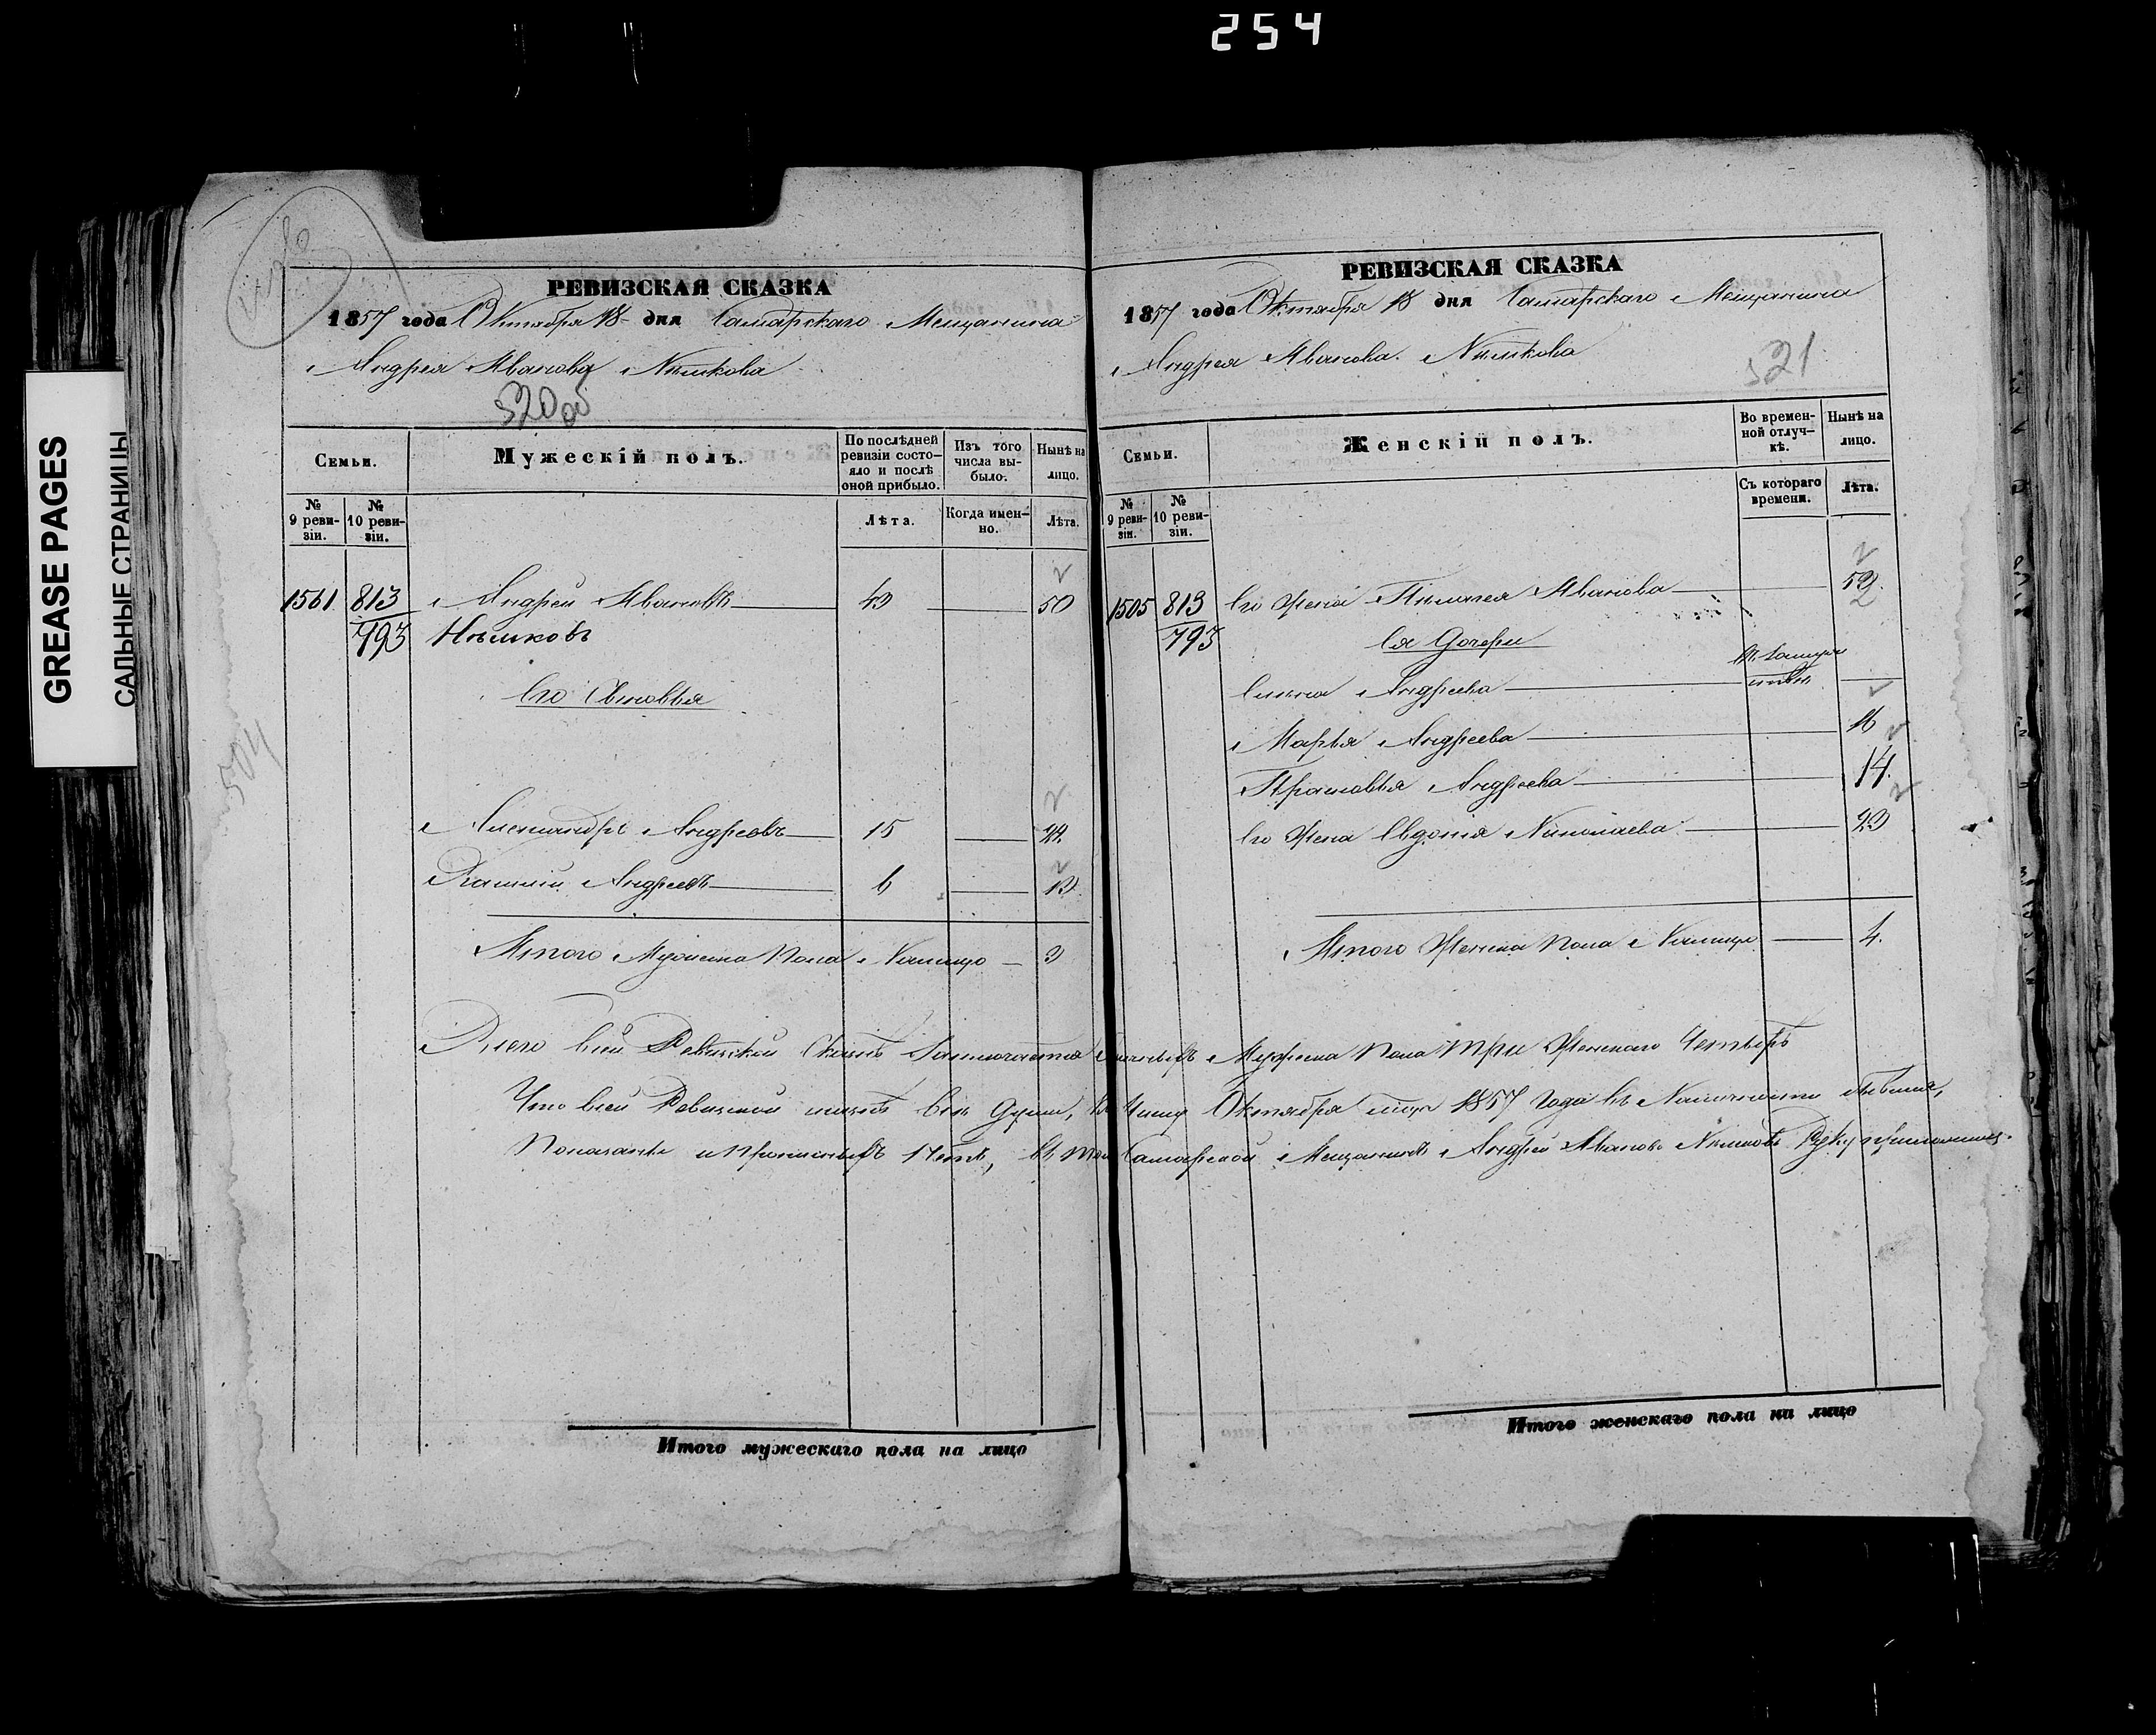 254
GREASE PAGES
САЛЬНЫЕ СТРАНИЦЫ
504
РЕВИЗСКАЯ СКАЗКА
1857 года Октября 18 дня Самарскаго Мещанина
Андрея Иванова Нѣмкова
320 об
Семьи.
Мужескій полъ.
По послѣдней ревизіи состояло и послѣ оной прибыло.
Изъ того числа выбыло.
Нынѣ на лицо.
№ 9 ревизіи.
№ 10 ревизіи.
Лѣта.
Когда именно.
Лѣта.
1561 813 Андрей Ивановъ 43 50
793 Нѣмковъ
Его Сыновья
Александръ Андреевъ 15 24
Андреевъ 6 13
Итого Мужеска Пола Налицо 3
РЕВИЗСКАЯ СКАЗКА
1857 года Октября 18 дня Самарскаго Мещанина
Андрея Иванова Нѣмкова
321
Семьи.
Женскій полъ.
Во временной отлучкѣ.
Нынѣ на лицо.
№ 9 ревизіи.
№ 10 ревизіи.
Съ котораго времени.
Лѣта.
1505 813 Его Жена Пелагея Иванова 52
793 Ея Дочери
Андреева
Марья Андреева 16
Прасковья Андреева 14.
Его Жена Евдотія Николаева 23
Итого Женска Пола Налицо 4.
Всего всей Ревизской Сказкѣ Заключается Мужеска Пола три Женскаго Четыре
Что всей Ревизской сказкѣ всѣ Души, Октября 1857 года въ Наличности бывшія,
Показаны и Прописныхъ Нетъ, въ томъ Самарской Мещанинъ Андрей Ивановъ Нѣмковъ Руку приложилъ.
Итого мужескаго пола на лицо
Итого женскаго пола на лицо